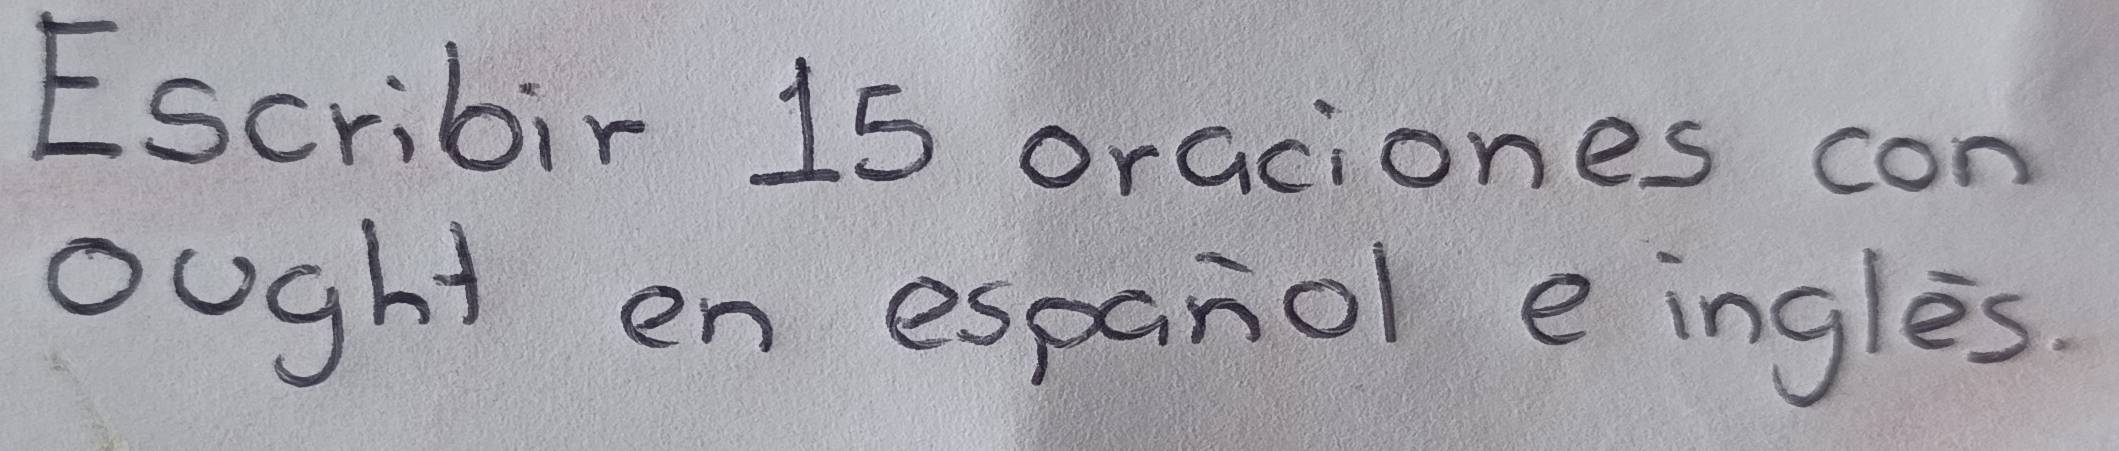 Escribir 15 oraciones con
ought en español e inglés.